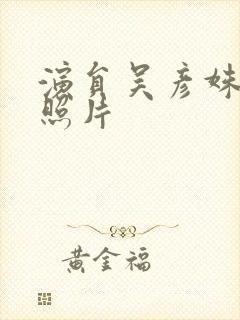 演員吴彦姝
照片
黄金福